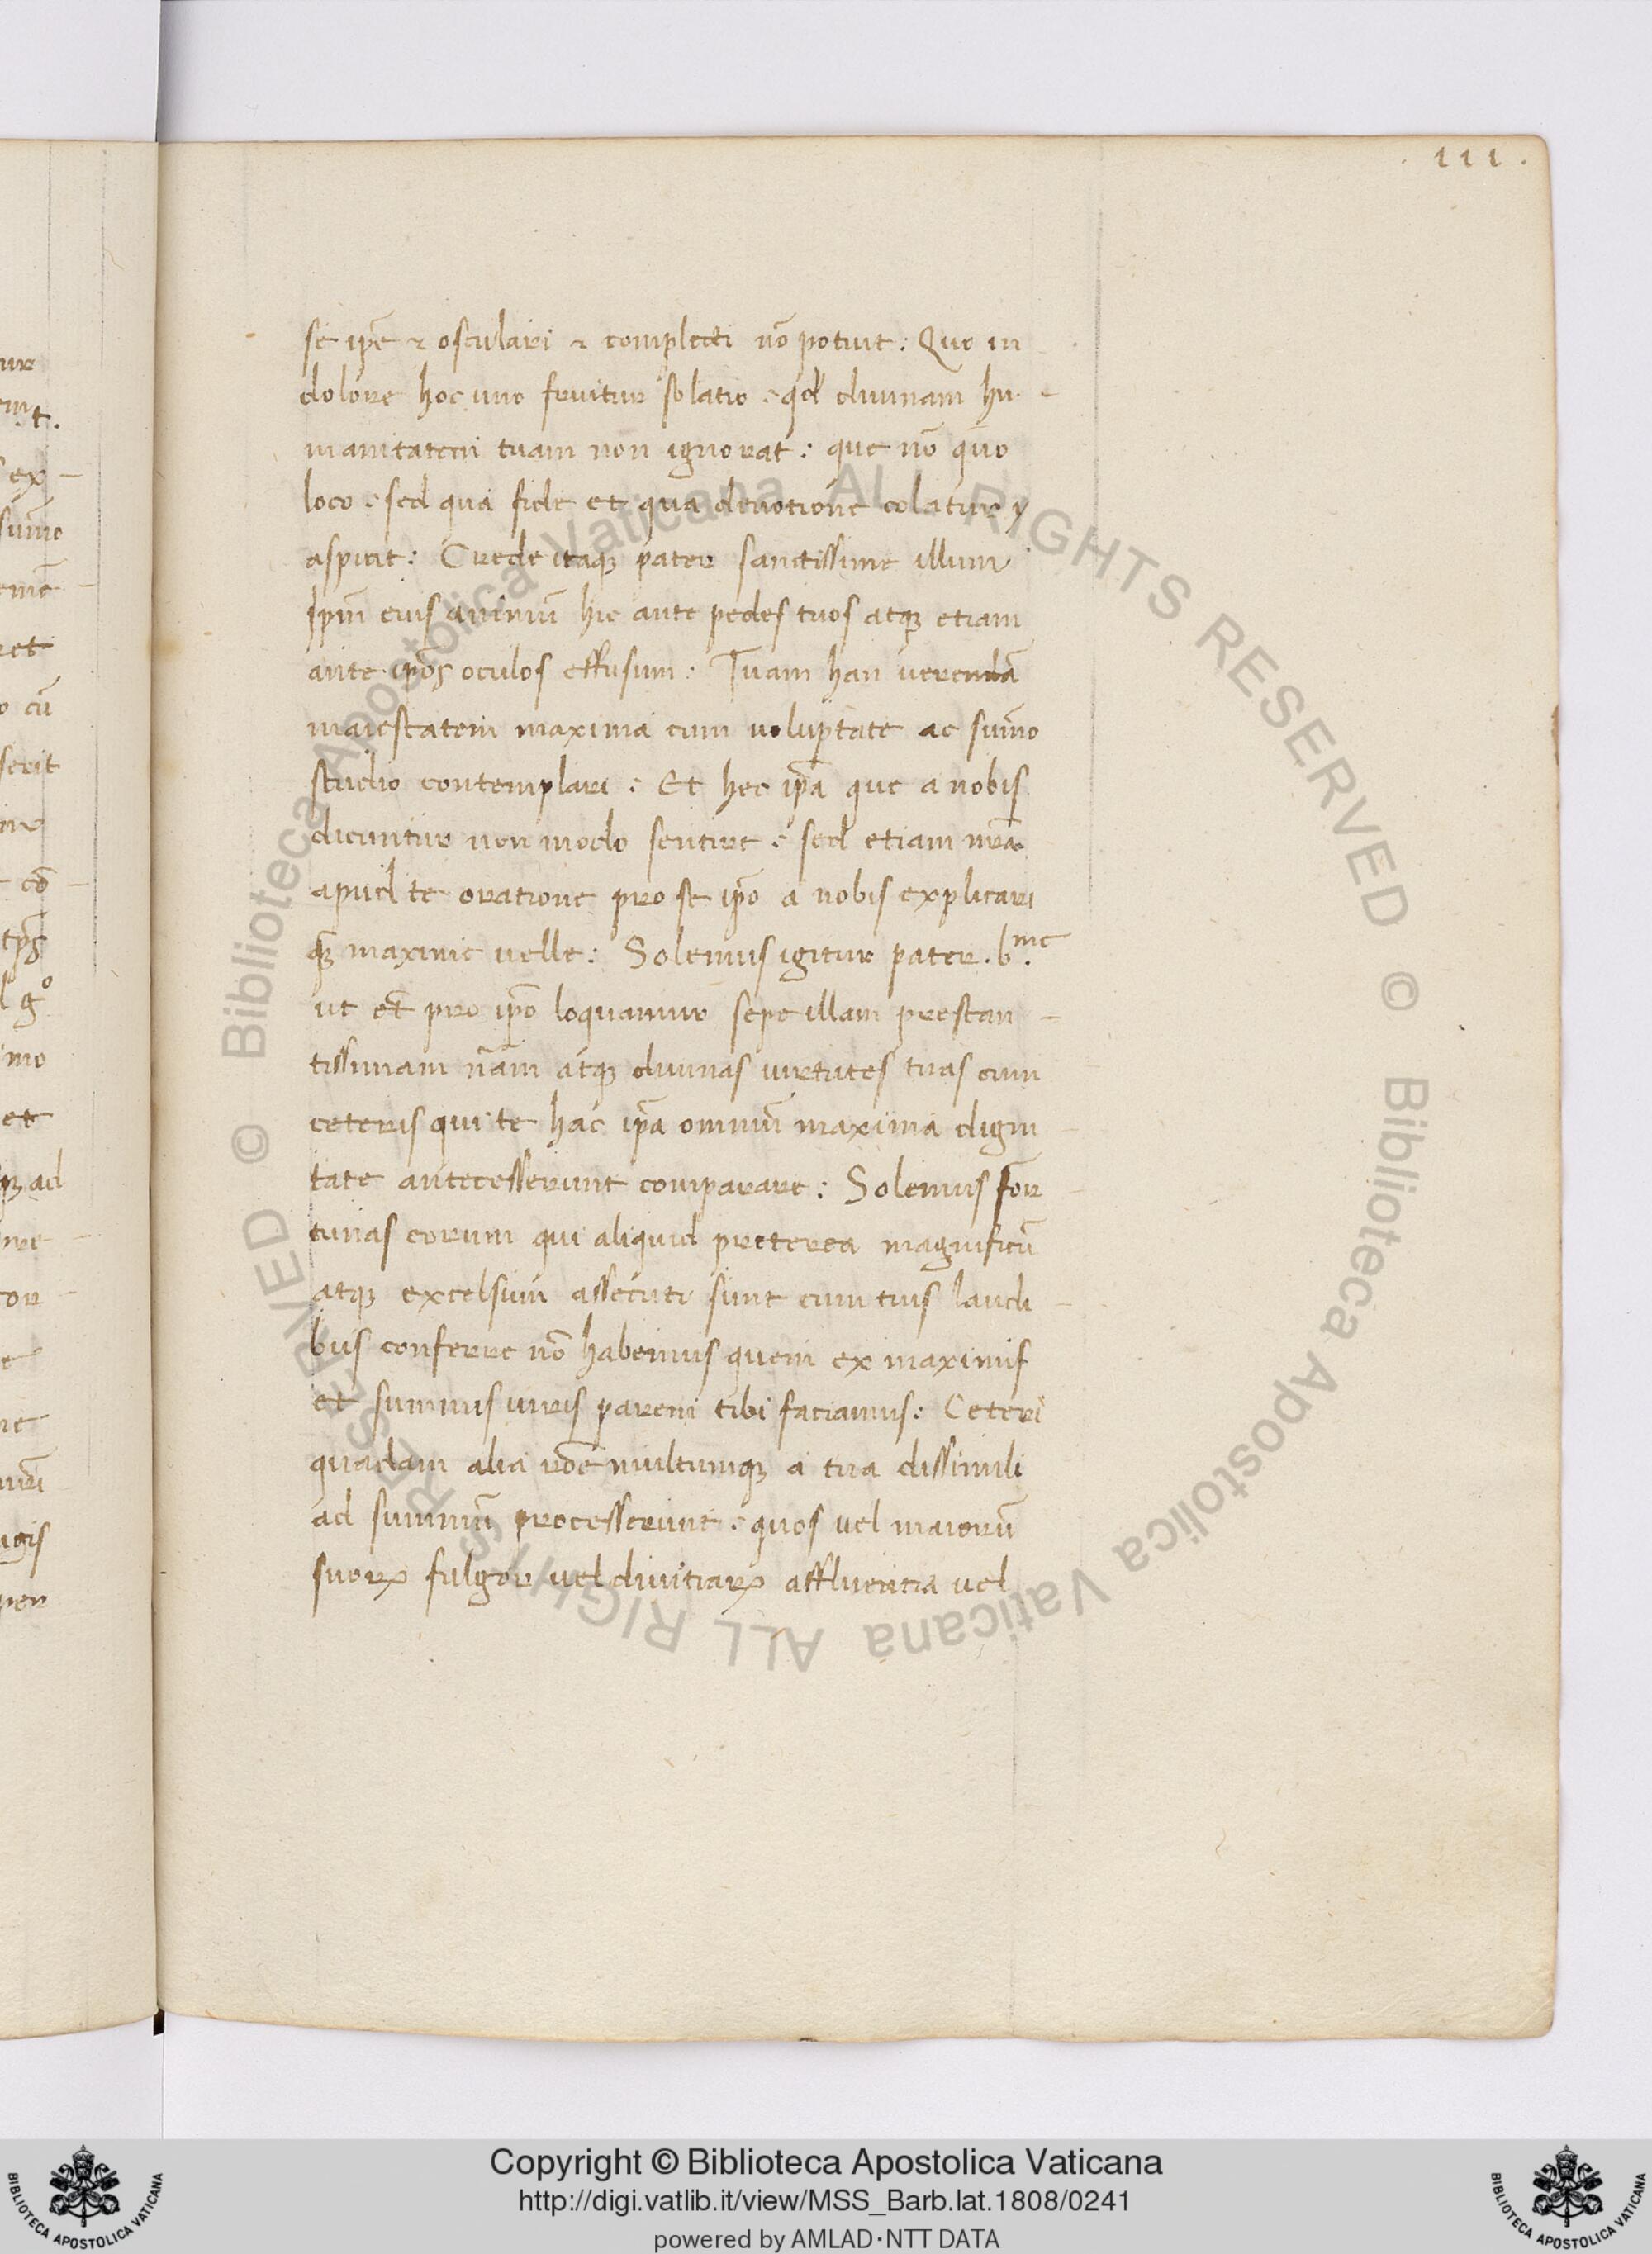 . 111 .
se ip̄e ⁊ osculari ⁊ complecti nō potuit : Quo in
dolore hoc uno fruitur solatio : qđ diuinam hu-
manitatem tuam non ignorat : que nō quo
loco : sed qua fide et qua deuotione colatur
aspicit : Crede itaqꝫ pater sanctissime illum
ipm̄ eius animū hic ante pedes tuos atqꝫ etiam
ante ip̄os oculos effusum : Tuam han uerendā
maiestatem maxima cum uoluptate ac sum̄o
studio contemplari : Et hec ip̄a que a nobis
dicuntur non modo sentire : sed etiam nrā
apud te oratione pro se ip̄o a nobis explicari
qꝫ maxime uelle : Solemus igitur pater . b.mē
ut et̄ pro ip̄o loquamur sepe illam prestan-
tissimam nām atqꝫ diuinas uirtutes tuas cum
ceteris qui te hac ip̄a omniū maxima digni
tate antecesserunt comparare : Solemus for
tunas eorum qui aliquid preterea magnificū
atqꝫ excelsum assecuti sunt cum tuis laudi
bus conferre nō habemus quem ex maximis
et summis uiris parem tibi faciamus : Ceteri
quadam alia rōe multumqꝫ a tua dissimili
ad summū processerunt : quos uel maiorū
suoꝝ fulgor uel diuitiaꝝ affluentia uel
Copyright © Biblioteca Apostolica Vaticana
http://digi.vatlib.it/view/MSS_Barb.lat.1808/0241
powered by AMLAD·NTT DATA